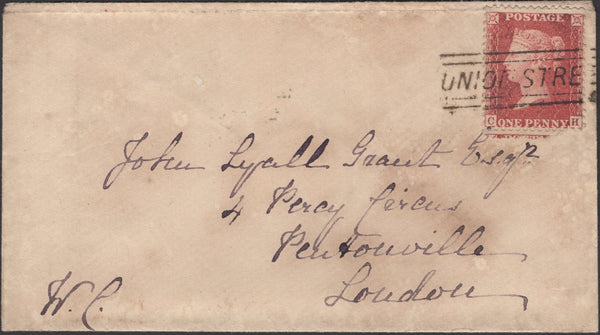 POSTAGE
UNION STRE
C ONE PENNY H
John Lyall Grant Esqr
4 Percy Circus
Pentonville
London
W.C.